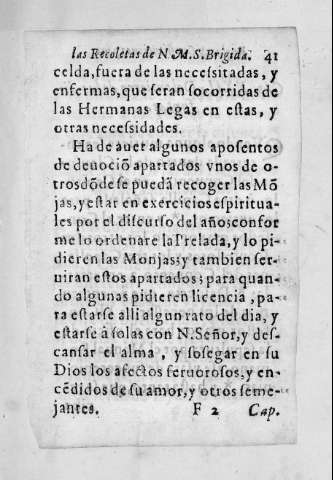 las Recoletas de N. M. S. Brigida. 41
celda, fuera de las necessitadas, y
enfermas, que seran socorridas de
las Hermanas Legas en estas, y
otras necessidades.
Ha de auer algunos aposentos
de deuociõ apartados vnos de o-
trosdõde se puedã recoger las Mõ
jas, y estar en exercicios espiritua-
les por el discurso del año; confor
me lo ordenare la Prelada, y lo pi-
dieren las Monjas; y tambien ser-
uiran estos apartados; para quan-
do algunas pidieren licencia, pa-
ra estarse alli algun rato del dia, y
estarse à solas con N. Señor, y des-
cansar el alma, y sosegar en su
Dios los afectos feruorosos, y en-
cẽdidos de su amor, y otros seme-
jantes. F 2 Cap.